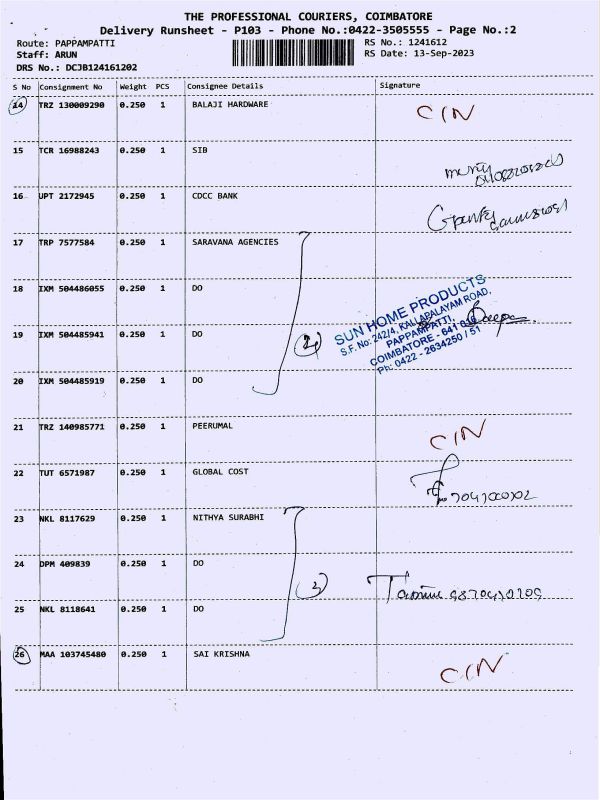 THE PROFESSIONAL COURIERS, COIMBATORE
Delivery Runsheet - P103 - Phone No.:0422-3505555 - Page No.:2
Route: PAPPAMPATTI RS No.: 1241612
Staff: ARUN RS Date: 13-Sep-2023
DRS No.: DCJB124161202
S No Consignment No Weight PCS Consignee Details Signature
14 TRZ 130009290 0.250 1 BALAJI HARDWARE CIN
15 TCR 16988243 0.250 1 SIB
16 UPT 2172945 0.250 1 CDCC BANK
17 TRP 7577584 0.250 1 SARAVANA AGENCIES
18 IXM 504486055 0.250 1 DO
19 IXM 504485941 0.250 1 DO
SUN HOME PRODUCTS
S.F. No: 242/4, KALLAPALAYAM ROAD,
PAPPAMPATTI,
COIMBATORE - 641 016
Ph: 0422 - 2634250 / 51
20 IXM 504485919 0.250 1 DO
21 TRZ 140985771 0.250 1 PEERUMAL CIN
22 TUT 6571987 0.250 1 GLOBAL COST
23 NKL 8117629 0.250 1 NITHYA SURABHI
24 DPM 409839 0.250 1 DO
25 NKL 8118641 0.250 1 DO
26 MAA 103745480 0.250 1 SAI KRISHNA CIN